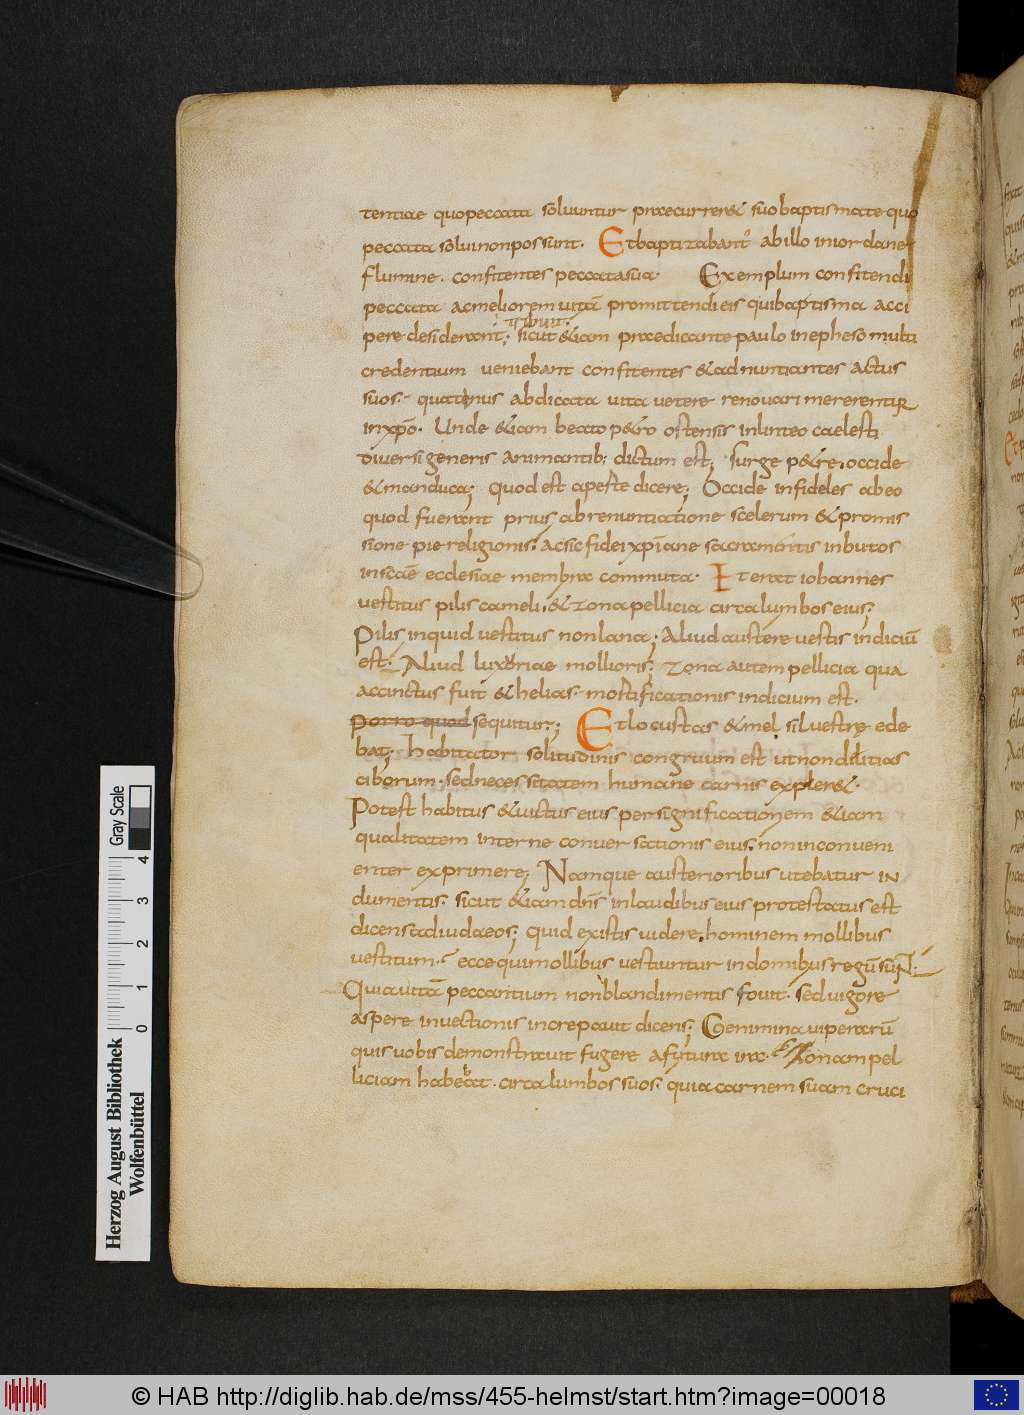 tentiae quo peccata soluuntur praecurrer& suo baptismate quo
peccata solui non possunt. Et baptizabant᷑ ab illo in iordane
flumine. confitentes peccata sua. Exemplum confitendi
peccata ac meliorem uitā promittendi eis qui baptisma acci
pere desiderant; sicut &iam praedicante paulo in epheso multi
credentium ueniebant confitentes & adnuntiantes actus
suos. quatinus abdicata uita uetere renouari mererentur
in xpō. Unde &iam beato p&ro ostensis in linteo caelesti
diuersi generis animantib; dictum est; surge p&re. occide
& manduca; quod est aperte dicere; Occide infideles ab eo
quod fuerant prius abrenuntiatione scelerum & promis
sione pie religionis. ac sic fidei xpiane sacramentis inbutos
in scāe ecclesiae membra commuta. Iterat iohannes
uestitus pilis cameli. & zona pellicia circa lumbos eius;
Pilis inquid uestitus non lana; Aliud austere uestis indiciū
est. Aliud luxoriae mollioris; zona autem pellicia qua
accinctus fuit & helias. mortificationis indicium est.
Porro quod sequitur; Et locustas & mel siluestre ede
bat; habitator solitudinis congruum est ut non dilitias
ciborum. sed necessitatem humane carnis expler&.
Potest habitus & uictus eius per significationem &iam
qualitatem interne conuersationis eius. non inconueni
enter exprimere; Namque austerioribus utebatur in
dumentis. sicut &iam dn̄s in laudibus eius protestatus est
dicens ad iudaeos; Quid existis uidere. hominem mollibus
uestitum. ecce qui mollibus uestiuntur in domibus regū sunt.
Quia uitā peccantium non blandimentis fouit. sed uigore
aspere inuectionis increpauit dicens; Genimina uiperarū
quis uobis demonstrauit fugere a futura ira. Zonam pel
liciam habebat. circa lumbos suos; quia carnem suam cruci
Herzog August Bibliothek
Wolfenbüttel
0 1 2 3 4
Gray Scale
© HAB http://diglib.hab.de/mss/455-helmst/start.htm?image=00018